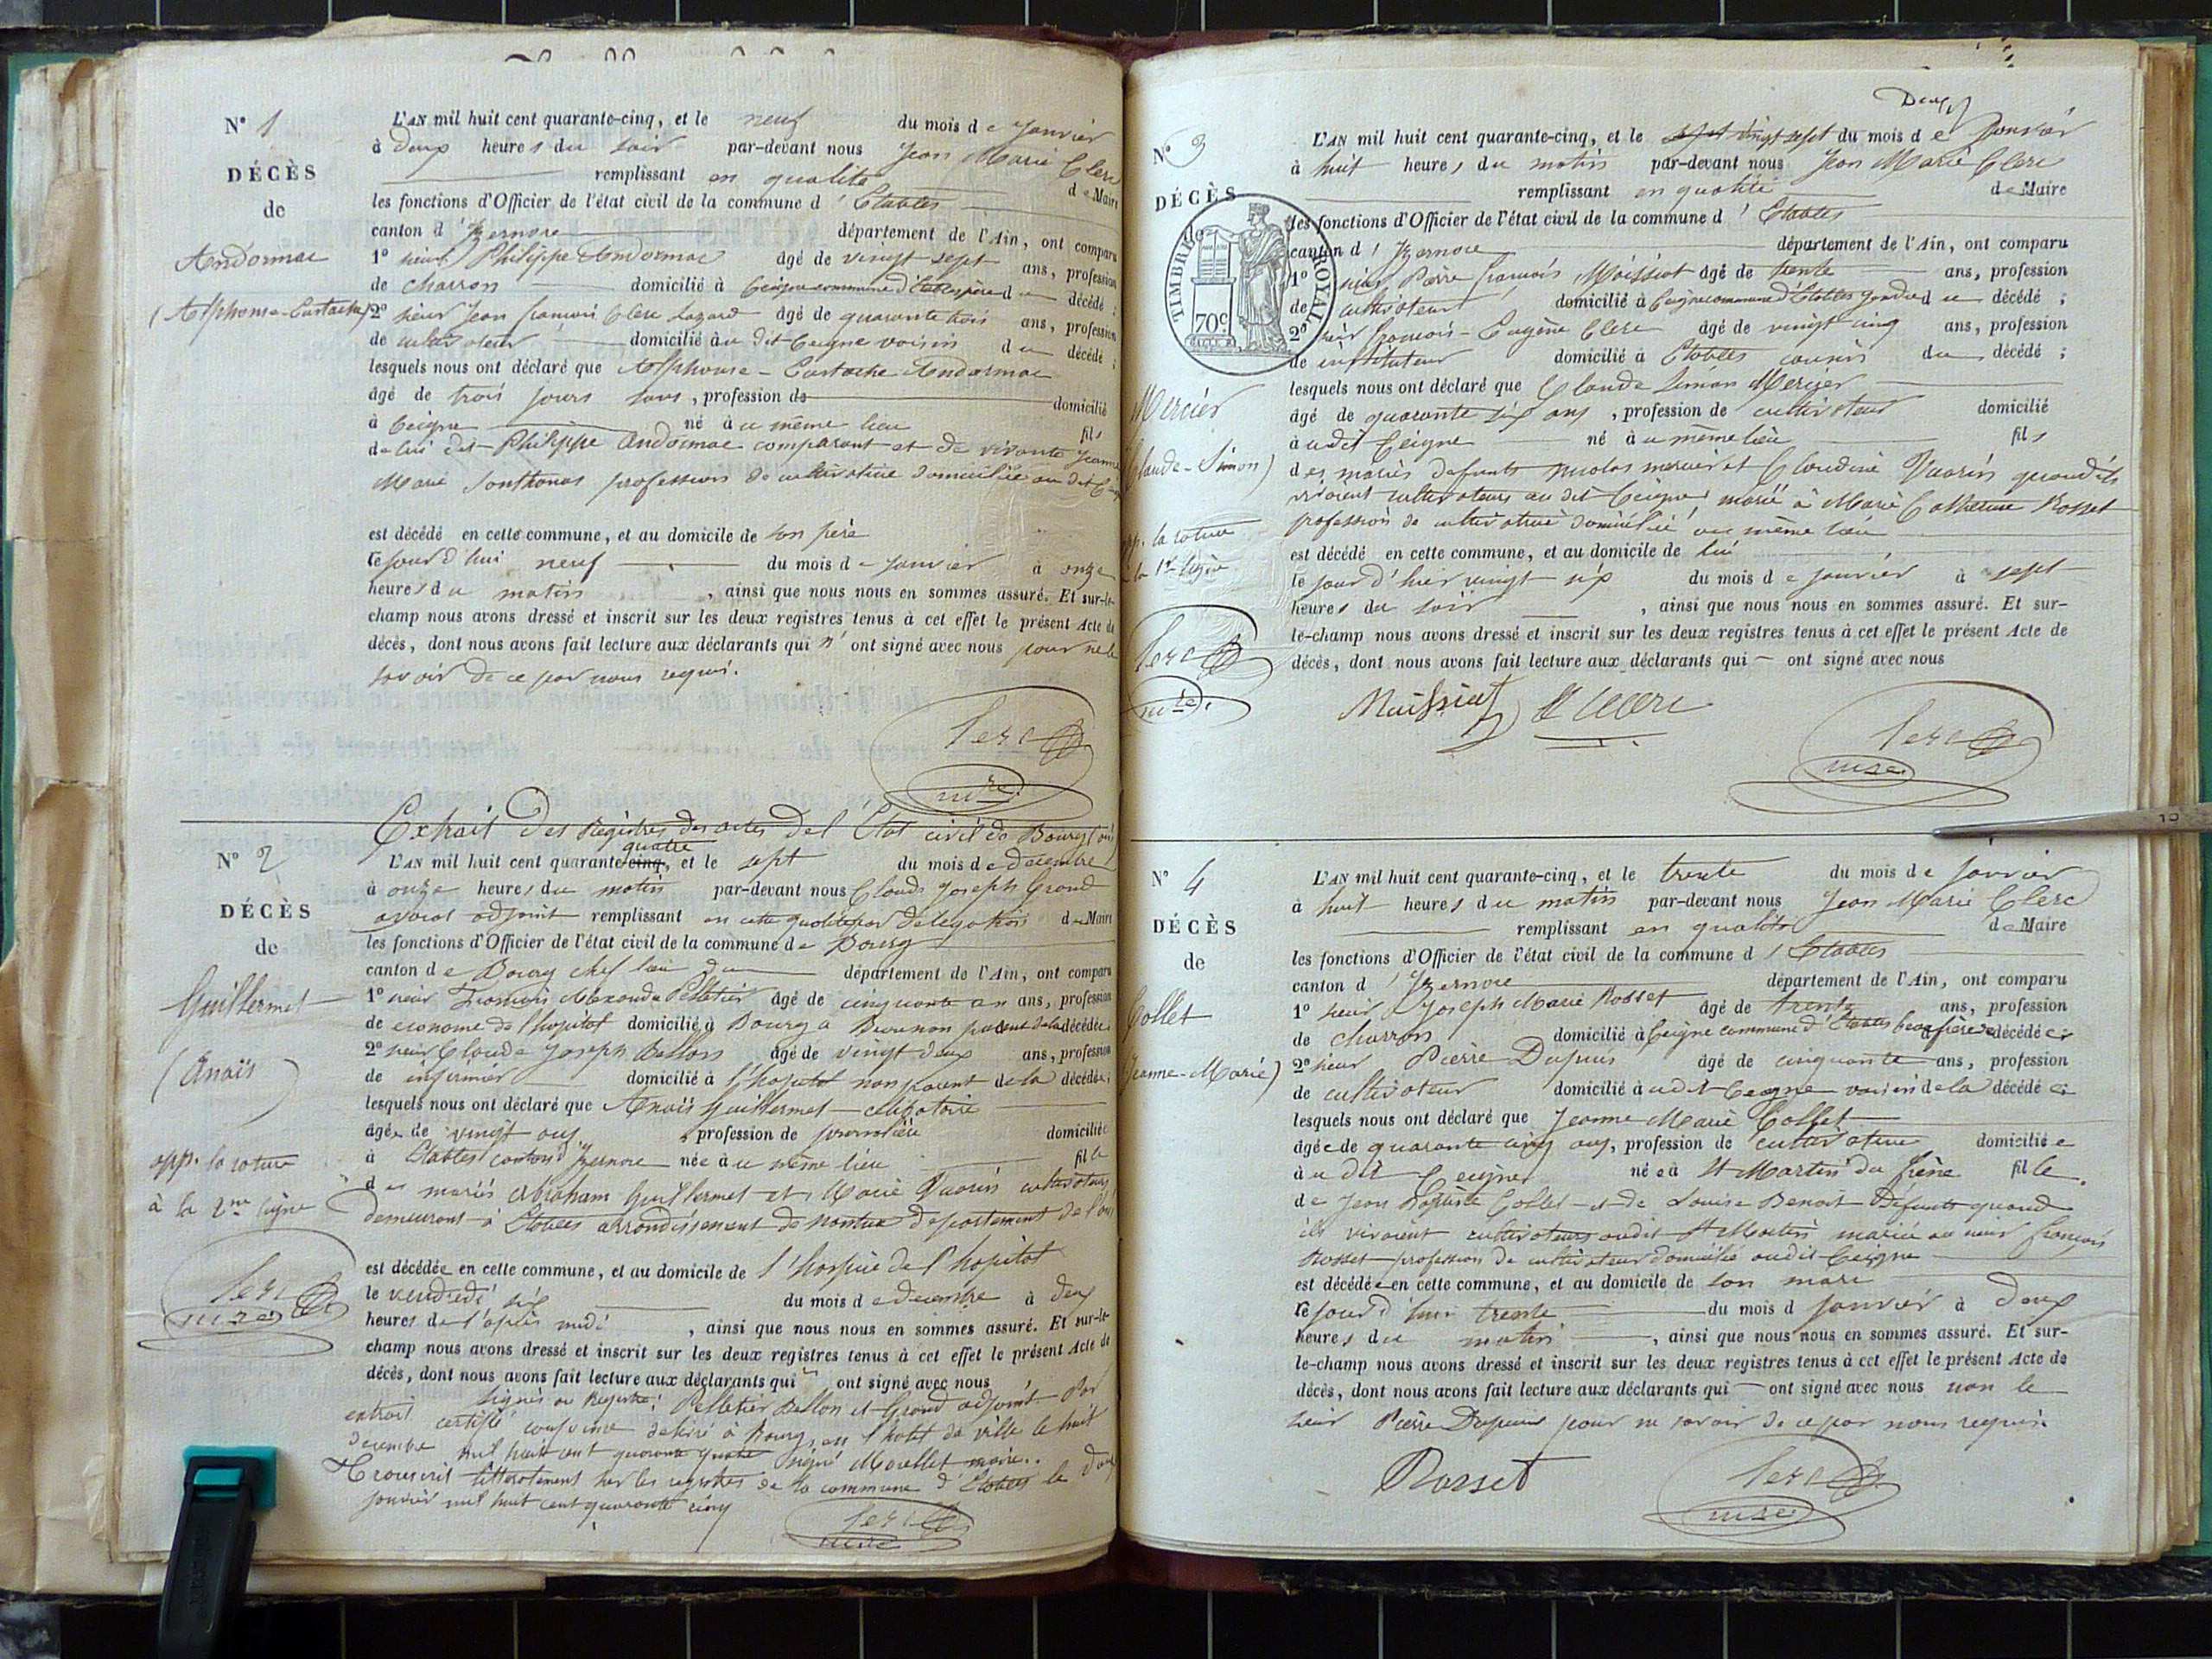 N° 1
DÉCÈS
de
Andormac
(Alphonse-Eustache)
L'AN mil huit cent quarante-cinq, et le neuf du mois de Janvier
à deux heures du soir par-devant nous Jean Marie Clerc
remplissant en qualité de Maire
les fonctions d'Officier de l'état civil de la commune d'Etables
canton d'Izernore département de l'Ain, ont comparu
1° sieur Philippe Andormac âgé de vingt sept ans, profession
de charron domicilié à Ceigne commune d'Etables père du décédé ;
2° sieur Jean françois Clerc Lazard âgé de quarante trois ans, profession
de cultivateur domicilié àu dit Ceigne voisin du décédé ;
lesquels nous ont déclaré que Alphonse-Eustache Andormac
âgé de trois jours sans, profession de domicilié
à Ceigne né àu même lieu fils
de lui dit Philippe Andormac comparant et de vivante Jeanne
Marie Southonax profession de cultivatrice domiciliée au dit
est décédé en cette commune, et au domicile de son père
le jourd'hui neuf du mois de janvier à onze
heures du matin, ainsi que nous nous en sommes assuré. Et sur-le-
champ nous avons dressé et inscrit sur les deux registres tenus à cet effet le présent Acte de
décès, dont nous avons fait lecture aux déclarants qui n'ont signé avec nous pour ne le
savoir de ce par nous requis.
Clerc
mre.
Extrait Des Registres des actes de l'Etat civil de Bourg
N° 2
DÉCÈS
de
Guillermet
(Anaïs)
app. la rature
à la 2me ligne
Clerc
mre
quatre
L'AN mil huit cent quarante-cinq, et le sept du mois de decembre
à onze heures du matin par-devant nous Claude Joseph Grand
avocat adjoint remplissant en cette qualité par délégation du Maire
les fonctions d'Officier de l'état civil de la commune de Bourg
canton de Bourg chef lieu du département de l'Ain, ont comparu
1° sieur François Alexandre Pelletier âgé de cinquante an ans, profession
de econome de l'hopital domicilié à Bourg a parent de la décédée ;
2° sieur Claude Joseph Bellon âgé de vingt deux ans, profession
de infirmier domicilié à l'hopital non parent de la décédée ;
lesquels nous ont déclaré que Anaïs Guillermet celibatoire
âgée de vingt ans, profession de journalière domiciliée
à Etables canton d'Izernore née àu même lieu fille
des mariés Abraham Guillermet et Marie Vuarin cultivateurs
demeurant à Etables arrondissement de nantua departement de l'ain
est décédée en cette commune, et au domicile de l'hospice de l'hopital
le vendredi six du mois de decembre à deux
heures de l'après midi, ainsi que nous nous en sommes assuré. Et sur-le-
champ nous avons dressé et inscrit sur les deux registres tenus à cet effet le présent Acte de
décès, dont nous avons fait lecture aux déclarants qui ont signé avec nous
signés au Registre : Pelletier Bellon et Grand adjoint. Par
extrait certifié conforme delivré à Bourg, en l'hotel de ville le huit
decembre mil huit cent quarante quatre signé Morellet maire.
Transcrit littéralement sur les registres de la commune d'Etables le douze
janvier mil huit cent quarante cinq
Clerc
mre
Deux
N° 3
DÉCÈS
de
TIMBRE ROYAL
70c
Mercier
Claude-Simon)
app. la rature
à la 1re ligne
Clerc
mre.
L'AN mil huit cent quarante-cinq, et le vingt sept du mois de Janvier
à huit heures du matin par-devant nous Jean Marie Clerc
remplissant en qualité de Maire
les fonctions d'Officier de l'état civil de la commune d'Etables
canton d'Izernore département de l'Ain, ont comparu
1° sieur Pierre françois Moissiat âgé de trente ans, profession
de cultivateur domicilié à Ceigne commune d'Etables gendre du décédé ;
2° sieur françois-Eugène Clerc âgé de vingt cinq ans, profession
de instituteur domicilié à Etables cousin du décédé ;
lesquels nous ont déclaré que Claude Simon Mercier
âgé de quarante six ans, profession de cultivateur domicilié
àu dit Ceigne né àu même lieu fils
des mariés defunts nicolas mercier et Claudine Vuarin quand ils
vivaient cultivateurs au dit Ceigne, marié à Marie Catherine Rosset
profession de cultivatrice domiciliée au même lieu
est décédé en cette commune, et au domicile de lui
le jour d'hier vingt six du mois de janvier à sept
heures du soir, ainsi que nous nous en sommes assuré. Et sur-
le-champ nous avons dressé et inscrit sur les deux registres tenus à cet effet le présent Acte de
décès, dont nous avons fait lecture aux déclarants qui ont signé avec nous
Moissiat Clerc
Clerc
mre.
N° 4
DÉCÈS
de
Collet
Jeanne-Marie)
L'AN mil huit cent quarante-cinq, et le trente du mois de janvier
à huit heures du matin par-devant nous Jean Marie Clerc
remplissant en qualité de Maire
les fonctions d'Officier de l'état civil de la commune d'Etables
canton d'Izernore département de l'Ain, ont comparu
1° sieur Joseph Marie Rosset âgé de trente ans, profession
de charron domicilié à Ceigne commune d'Etables beaufrère de décédée ;
2° sieur Pierre Dupuis âgé de cinquante ans, profession
de cultivateur domicilié àudit Ceigne voisin de la décédée ;
lesquels nous ont déclaré que Jeanne Marie Collet
âgée de quarante cinq ans, profession de cultivatrice domiciliée
àu dit Ceigne née à St Martin du frêne fille
de Jean Baptiste Collet et de Louise Benoit Defunts quand
ils vivaient cultivateurs audit St Martin mariée au sieur françois
Rosset profession de cultivateur domicilié audit Ceigne
est décédée en cette commune, et au domicile de son mari
le jourd'hui trente du mois d janvier à deux
heures du matin, ainsi que nous nous en sommes assuré. Et sur-
le-champ nous avons dressé et inscrit sur les deux registres tenus à cet effet le présent Acte de
décès, dont nous avons fait lecture aux déclarants qui ont signé avec nous non le
sieur Pierre Dupuis pour ne savoir de ce par nous requis.
Rosset
Clerc
mre